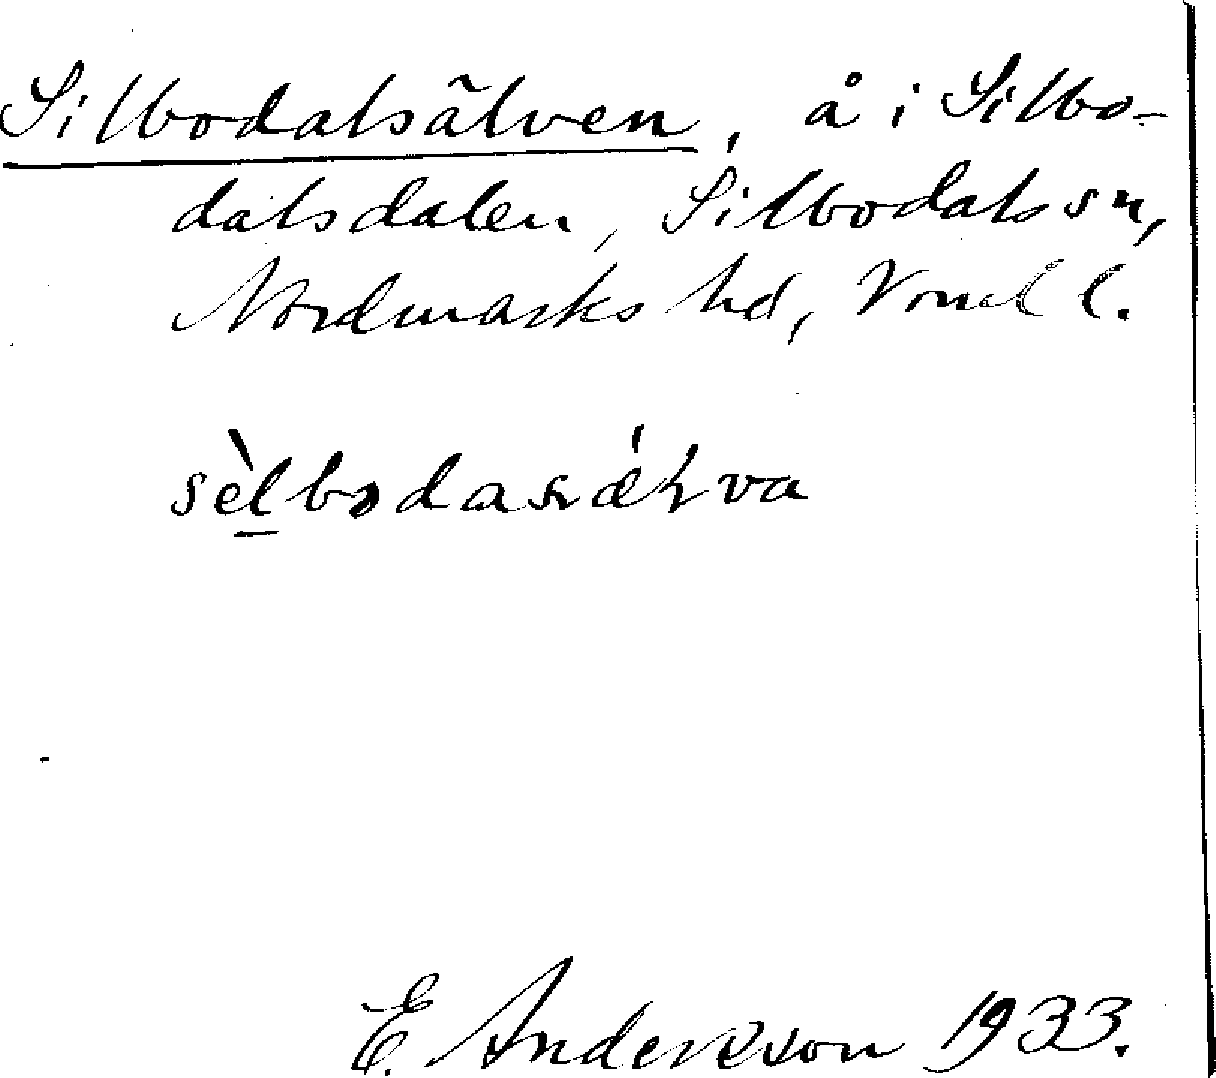 Silbodalsälven, å i Silbo-
dalsdalen, Silbodals sn,
Nordmarks hd, Vrml l.
E. Andersson 1933.